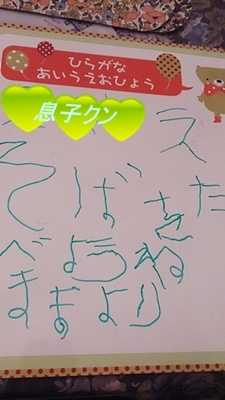 ひらがな
あいうえおひょう
息子クン
え
そばをた
べようね
ままより